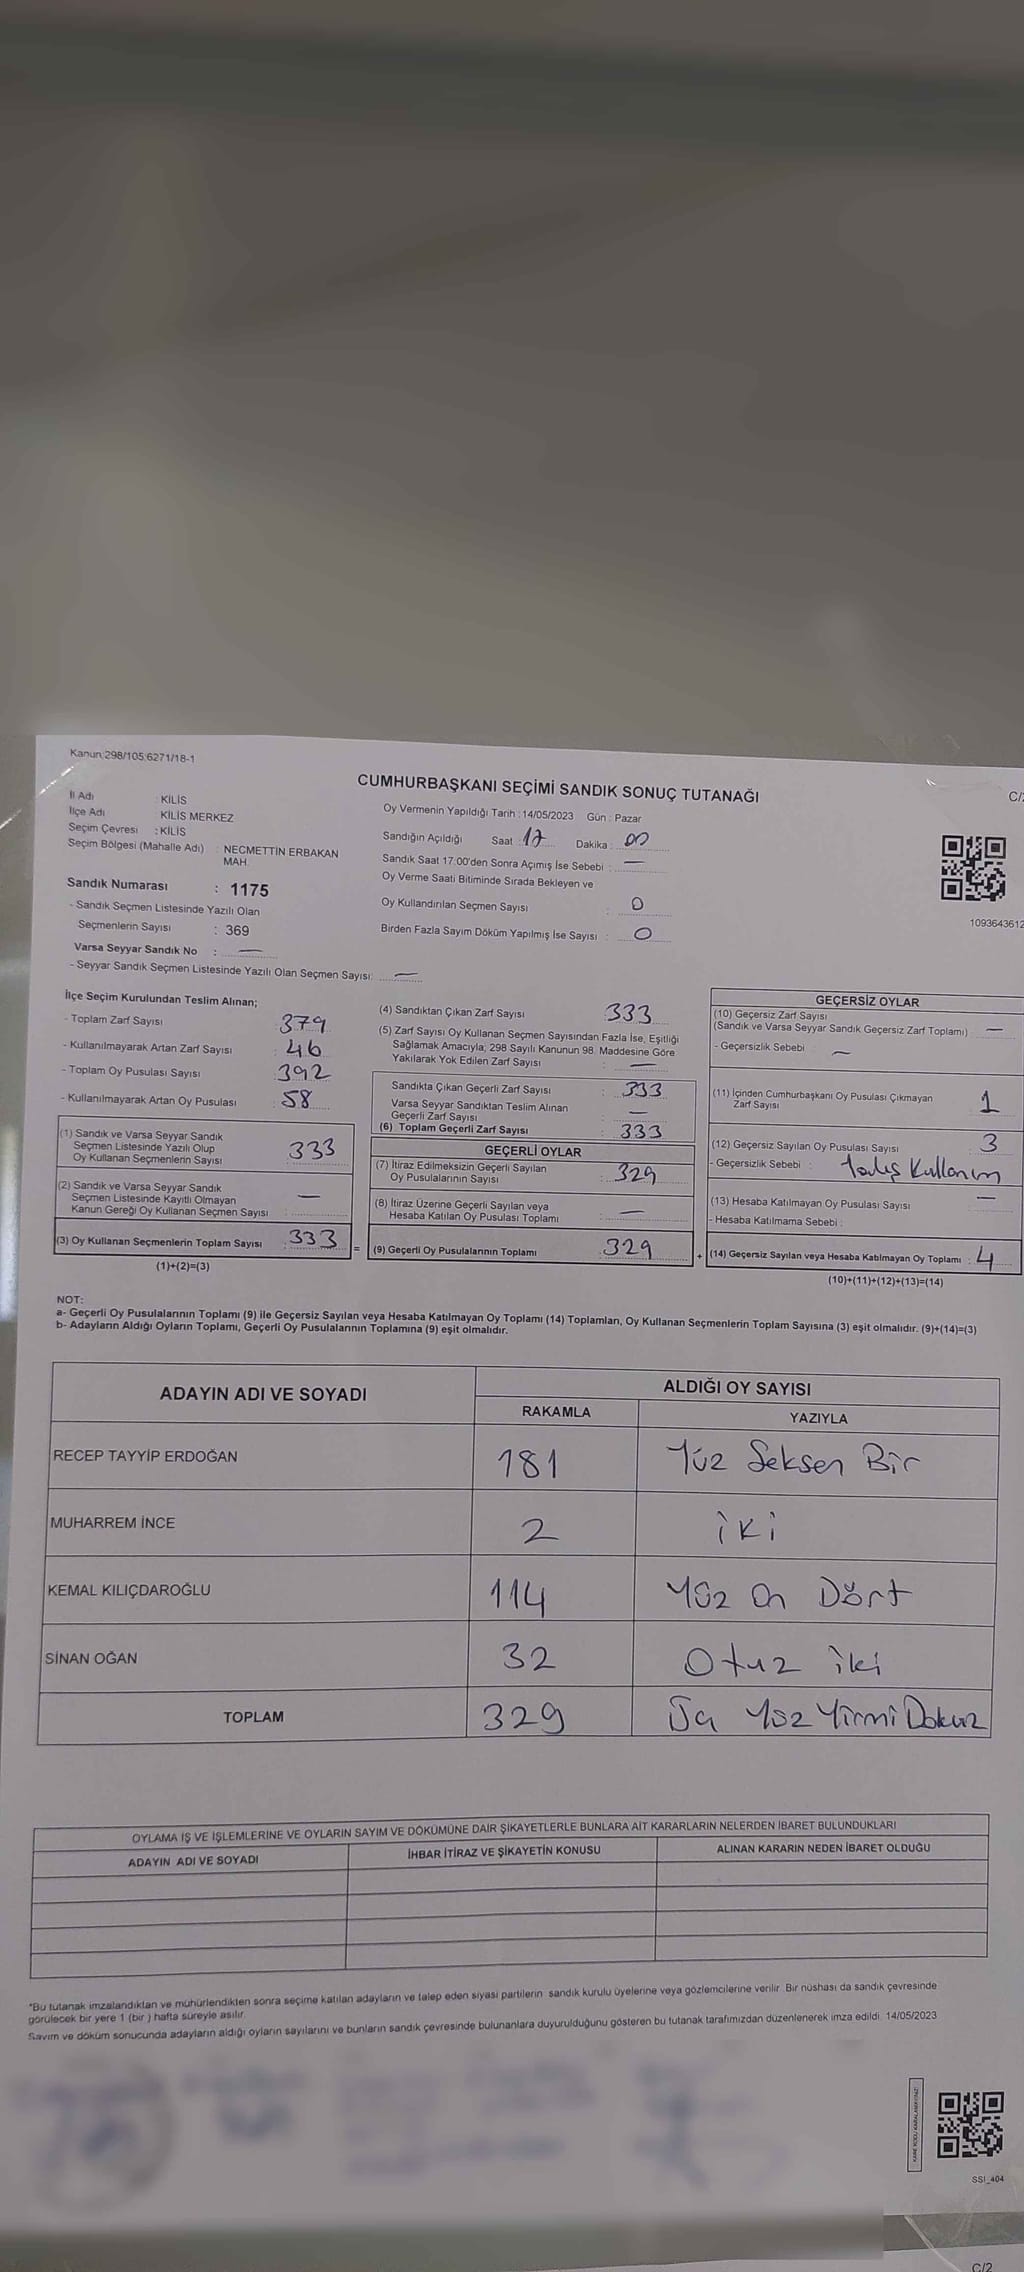 Kanun:298/105;6271/18-1
CUMHURBAŞKANI SEÇİMİ SANDIK SONUÇ TUTANAĞI
C/2
İl Adı : KİLİS
İlçe Adı KİLİS MERKEZ
Seçim Çevresi : KİLİS
Seçim Bölgesi (Mahalle Adı) : NECMETTİN ERBAKAN
MAH.
Sandık Numarası : 1175
- Sandık Seçmen Listesinde Yazılı Olan
Seçmenlerin Sayısı : 369
Varsa Seyyar Sandık No : —
- Seyyar Sandık Seçmen Listesinde Yazılı Olan Seçmen Sayısı: —
Oy Vermenin Yapıldığı Tarih : 14/05/2023 Gün : Pazar
Sandığın Açıldığı Saat : 17 Dakika : 00
Sandık Saat 17:00'den Sonra Açımış İse Sebebi : —
Oy Verme Saati Bitiminde Sırada Bekleyen ve
Oy Kullandırılan Seçmen Sayısı : 0
Birden Fazla Sayım Döküm Yapılmış İse Sayısı : 0
1093643612
İlçe Seçim Kurulundan Teslim Alınan;
- Toplam Zarf Sayısı : 379
- Kullanılmayarak Artan Zarf Sayısı : 46
- Toplam Oy Pusulası Sayısı : 392
- Kullanılmayarak Artan Oy Pusulası : 58
(1) Sandık ve Varsa Seyyar Sandık
Seçmen Listesinde Yazılı Olup
Oy Kullanan Seçmenlerin Sayısı : 333
(2) Sandık ve Varsa Seyyar Sandık
Seçmen Listesinde Kayıtlı Olmayan
Kanun Gereği Oy Kullanan Seçmen Sayısı : —
(3) Oy Kullanan Seçmenlerin Toplam Sayısı : 333
(1)+(2)=(3)
(4) Sandıktan Çıkan Zarf Sayısı : 333
(5) Zarf Sayısı Oy Kullanan Seçmen Sayısından Fazla İse, Eşitliği
Sağlamak Amacıyla; 298 Sayılı Kanunun 98. Maddesine Göre
Yakılarak Yok Edilen Zarf Sayısı : —
Sandıkta Çıkan Geçerli Zarf Sayısı : 333
Varsa Seyyar Sandıktan Teslim Alınan
Geçerli Zarf Sayısı : —
(6) Toplam Geçerli Zarf Sayısı : 333
GEÇERLİ OYLAR
(7) İtiraz Edilmeksizin Geçerli Sayılan
Oy Pusulalarının Sayısı : 329
(8) İtiraz Üzerine Geçerli Sayılan veya
Hesaba Katılan Oy Pusulası Toplamı : —
= (9) Geçerli Oy Pusulalarının Toplamı : 329
GEÇERSİZ OYLAR
(10) Geçersiz Zarf Sayısı
(Sandık ve Varsa Seyyar Sandık Geçersiz Zarf Toplamı) : —
- Geçersizlik Sebebi : —
(11) İçinden Cumhurbaşkanı Oy Pusulası Çıkmayan
Zarf Sayısı : 1
(12) Geçersiz Sayılan Oy Pusulası Sayısı : 3
- Geçersizlik Sebebi : Yanlış Kullanım
(13) Hesaba Katılmayan Oy Pusulası Sayısı : —
- Hesaba Katılmama Sebebi :
+ (14) Geçersiz Sayılan veya Hesaba Katılmayan Oy Toplamı : 4
(10)+(11)+(12)+(13)=(14)
NOT:
a- Geçerli Oy Pusulalarının Toplamı (9) ile Geçersiz Sayılan veya Hesaba Katılmayan Oy Toplamı (14) Toplamları, Oy Kullanan Seçmenlerin Toplam Sayısına (3) eşit olmalıdır. (9)+(14)=(3)
b- Adayların Aldığı Oyların Toplamı, Geçerli Oy Pusulalarının Toplamına (9) eşit olmalıdır.
ADAYIN ADI VE SOYADI ALDIĞI OY SAYISI
RAKAMLA YAZIYLA
RECEP TAYYİP ERDOĞAN 181 Yüz Seksen Bir
MUHARREM İNCE 2 iki
KEMAL KILIÇDAROĞLU 114 Yüz On Dört
SİNAN OĞAN 32 Otuz iki
TOPLAM 329 Üç Yüz Yirmi Dokuz
OYLAMA İŞ VE İŞLEMLERİNE VE OYLARIN SAYIM VE DÖKÜMÜNE DAİR ŞİKAYETLERLE BUNLARA AİT KARARLARIN NELERDEN İBARET BULUNDUKLARI
ADAYIN ADI VE SOYADI İHBAR İTİRAZ VE ŞİKAYETİN KONUSU ALINAN KARARIN NEDEN İBARET OLDUĞU
*Bu tutanak imzalandıktan ve mühürlendikten sonra seçime katılan adayların ve talep eden siyasi partilerin sandık kurulu üyelerine veya gözlemcilerine verilir. Bir nüshası da sandık çevresinde
görülecek bir yere 1 (bir ) hafta süreyle asılır.
Sayım ve döküm sonucunda adayların aldığı oyların sayılarını ve bunların sandık çevresinde bulunanlara duyurulduğunu gösteren bu tutanak tarafımızdan düzenlenerek imza edildi. 14/05/2023
SSI_404
C/2